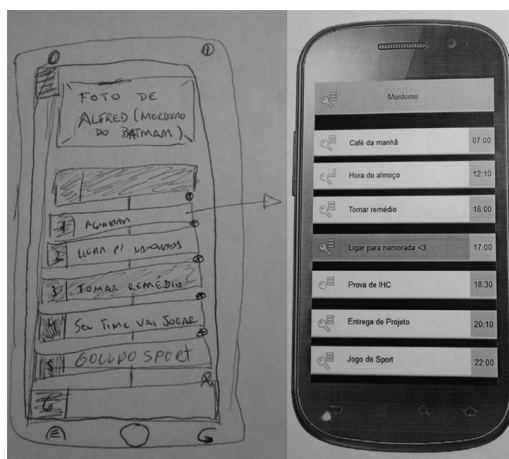 FOTO DE
ALFRED (MORDOMO
DO BATMAM)
1 ACORDAR
2 LIGAR P/ NAMORADA
3 TOMAR REMÉDIO
4 SEU TIME VAI JOGAR
5 GOLL DO SPORT
6
Mordomo
Café da manhã 07:00
Hora do almoço 12:10
Tomar remédio 16:00
Ligar para namorada <3 17:00
Prova de IHC 18:30
Entrega de Projeto 20:10
Jogo do Sport 22:00